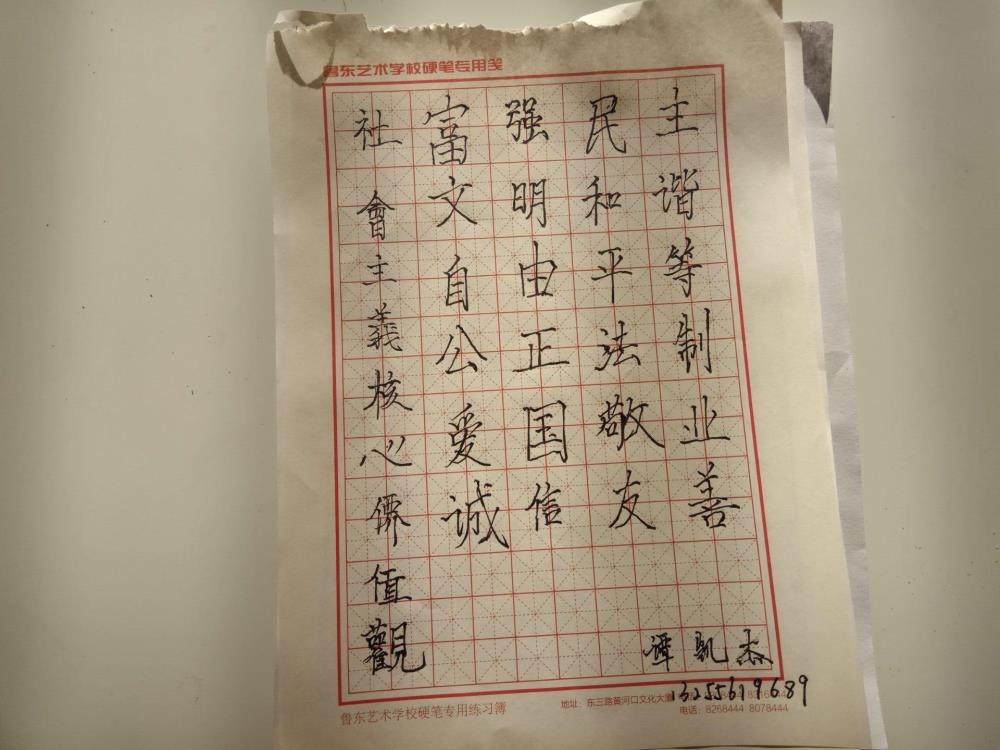 鲁东艺术学校硬笔专用笺
社會主義核心價值觀
富强民主
文明和谐
自由平等
公正法制
爱国敬业
诚信友善
谭凯杰
鲁东艺术学校硬笔专用练习簿
地址：东三路黄河口文化大厦
电话：8268444 8078444